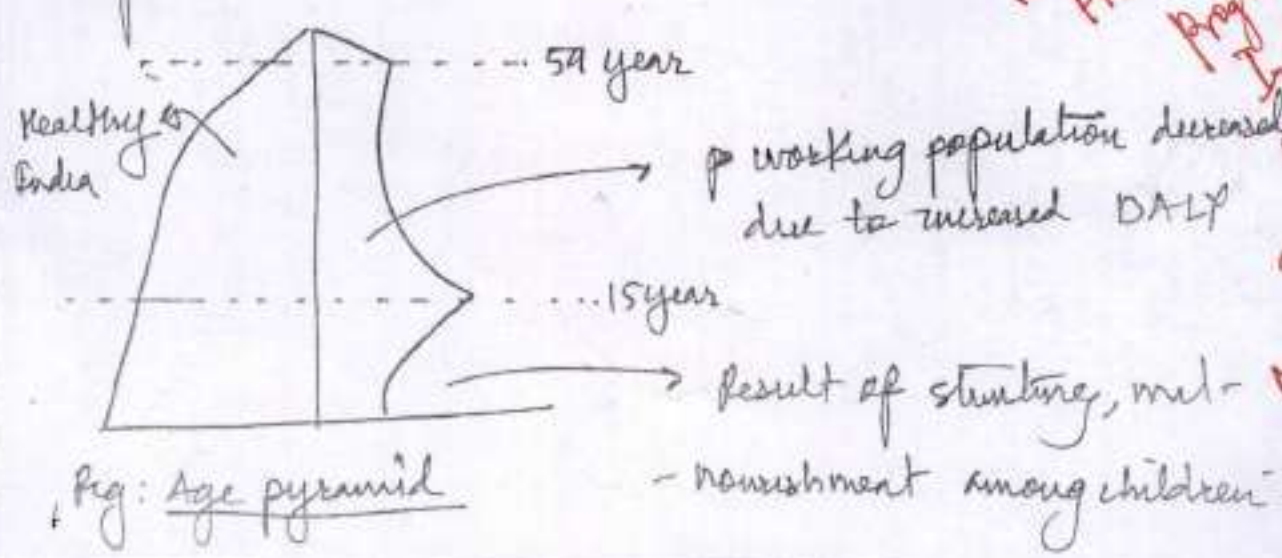 59 year
Healthy
India
working population decreased
due to increased DALY
15 year
Result of stunting, mal-
- nourishment among children
Fig: Age pyramid